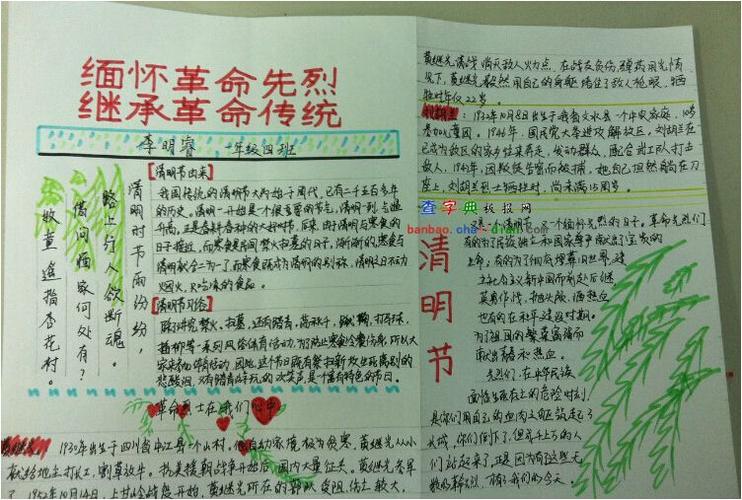 缅怀革命先烈
继承革命传统
李明睿 一年级四班
清明时节雨纷纷，
路上行人欲断魂。
借问酒家何处有？
牧童遥指杏花村。
[清明节由来]
我国传统的清明节大约始于周代，已有二千五百多年
的历史。清明一开始是一个很重要的节气，清明一到，气温
升高，正是春耕春种的大好时节，后来，由于清明与寒食的
日子接近，而寒食是民间禁火扫墓的日子，渐渐的，寒食与
清明就合二为一了，而寒食既成为清明的别称，清明这日不动
烟火，只吃凉的食品。
[清明节习俗]
除了讲究禁火、扫墓，还有踏青、荡秋千、蹴鞠、打马球、
插柳等一系列风俗体育活动，
大家参加体育活动，因此，这个节日既有祭扫新坟生死离别的
悲酸泪，又有踏青游玩的欢笑声，是个富有特色的节日。
革命烈士在我们心中
黄继光：1930年出生于四川省中江县一个山村，他自幼家境极为贫寒，黄继光从小
就给地主打长工，割草放牛，抗美援朝战争开始后，国内大量征兆，黄继光参军
了，1952年10月14日，上甘岭战役开始，黄继光所在的部队受阻，伤亡较大，
黄继光请战消灭敌人火力点，在战友负伤，弹药用光情
况下，黄继光毅然用自己的身躯堵住了敌人枪眼，牺
牲时年仅22岁。
刘胡兰：1932年10月8日出生于我省文水县一个中农家庭，10岁
参加儿童团。1946年，国民党大举进攻解放区，刘胡兰在
已成为敌区的家乡往来奔走，发动群众，配合武工队打击
敌人，1947年，因叛徒告密而被捕，她自己坦然躺在刀
座上，刘胡兰烈士牺牲时，尚未满15周岁。
查字典板报网
清明节
一个缅怀先烈的日子。革命先烈们
有的为了民族独立和国家尊严献出了宝贵的
生命；有的为了彻底埋葬旧世界，建
立社会主义新中国而前赴后继
英勇作战，抛头颅，洒热血
也有的在和平建设时期，
为了祖国的繁荣富强而
献出青春和热血。
先烈们，在中华民族
面临生死存亡的危险时刻，
是你们用自己的血肉之躯筑起了
长城，你们倒下了，但是千千万万的人
们站起来了，正是因为有了这些无